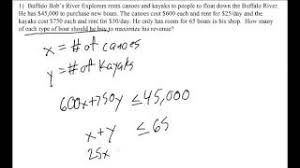 1) Buffalo Bob's River Explorers rents canoes and kayaks to people to float down the Buffalo River.
He has $45,000 to purchase new boats. The canoes cost $600 each and rent for $25/day and the
kayaks cost $750 each and rent for $30/day. He only has room for 65 boats in his shop. How many
of each type of boat should he buy to maximize his revenue?
x = # of canoes
y = # of Kayaks
600x+750y ≤ 45,000
x+y ≤ 65
25x